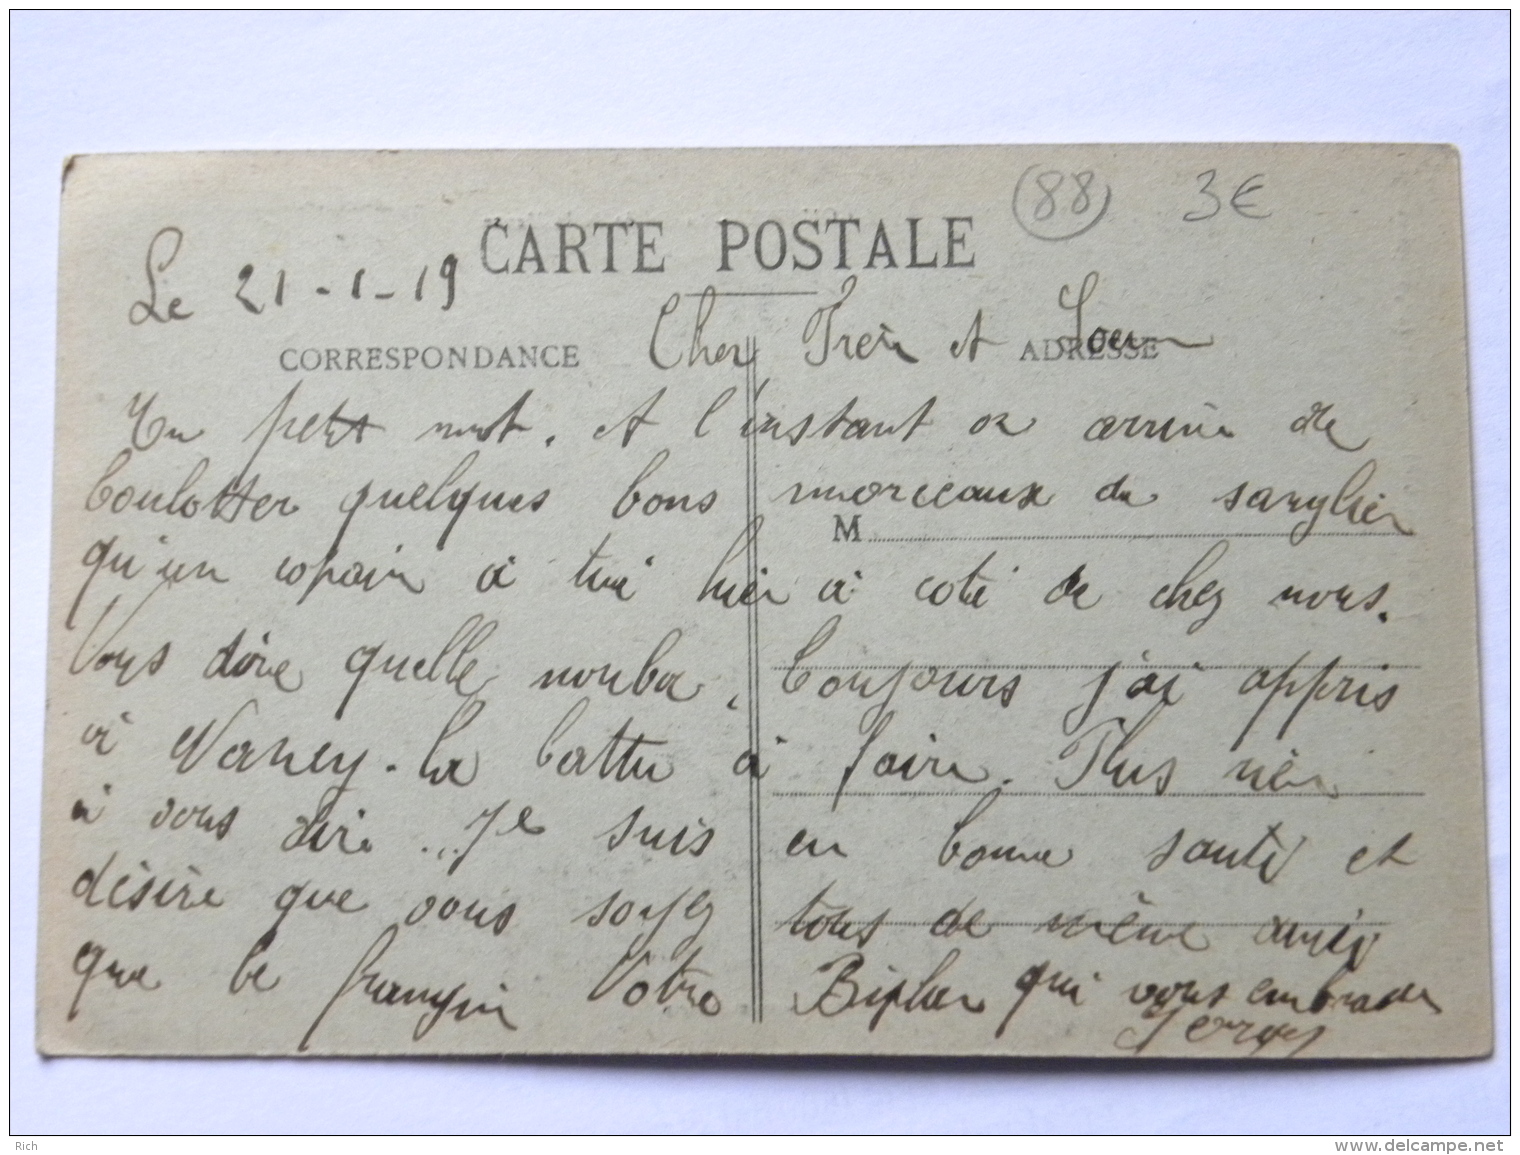 (88) 3€
CARTE POSTALE
Le 21-1-19
CORRESPONDANCE
ADRESSE
Cher Frère et Soeur
Un petit mot. A l'instant on arrive de
boulotter quelques bons morceaux de sanglier
M
qu'un copain à tué hier à coté de chez nous.
Vous dire quelle nouba. Toujours j'ai appris
à Nancy. la battu à faire. Plus rien
à vous dire... Je suis en bonne santé et
désire que vous soyez tous de même ainsi
que le frangin Votre qui vous embrasse
Georges
Rich
delcampe.net